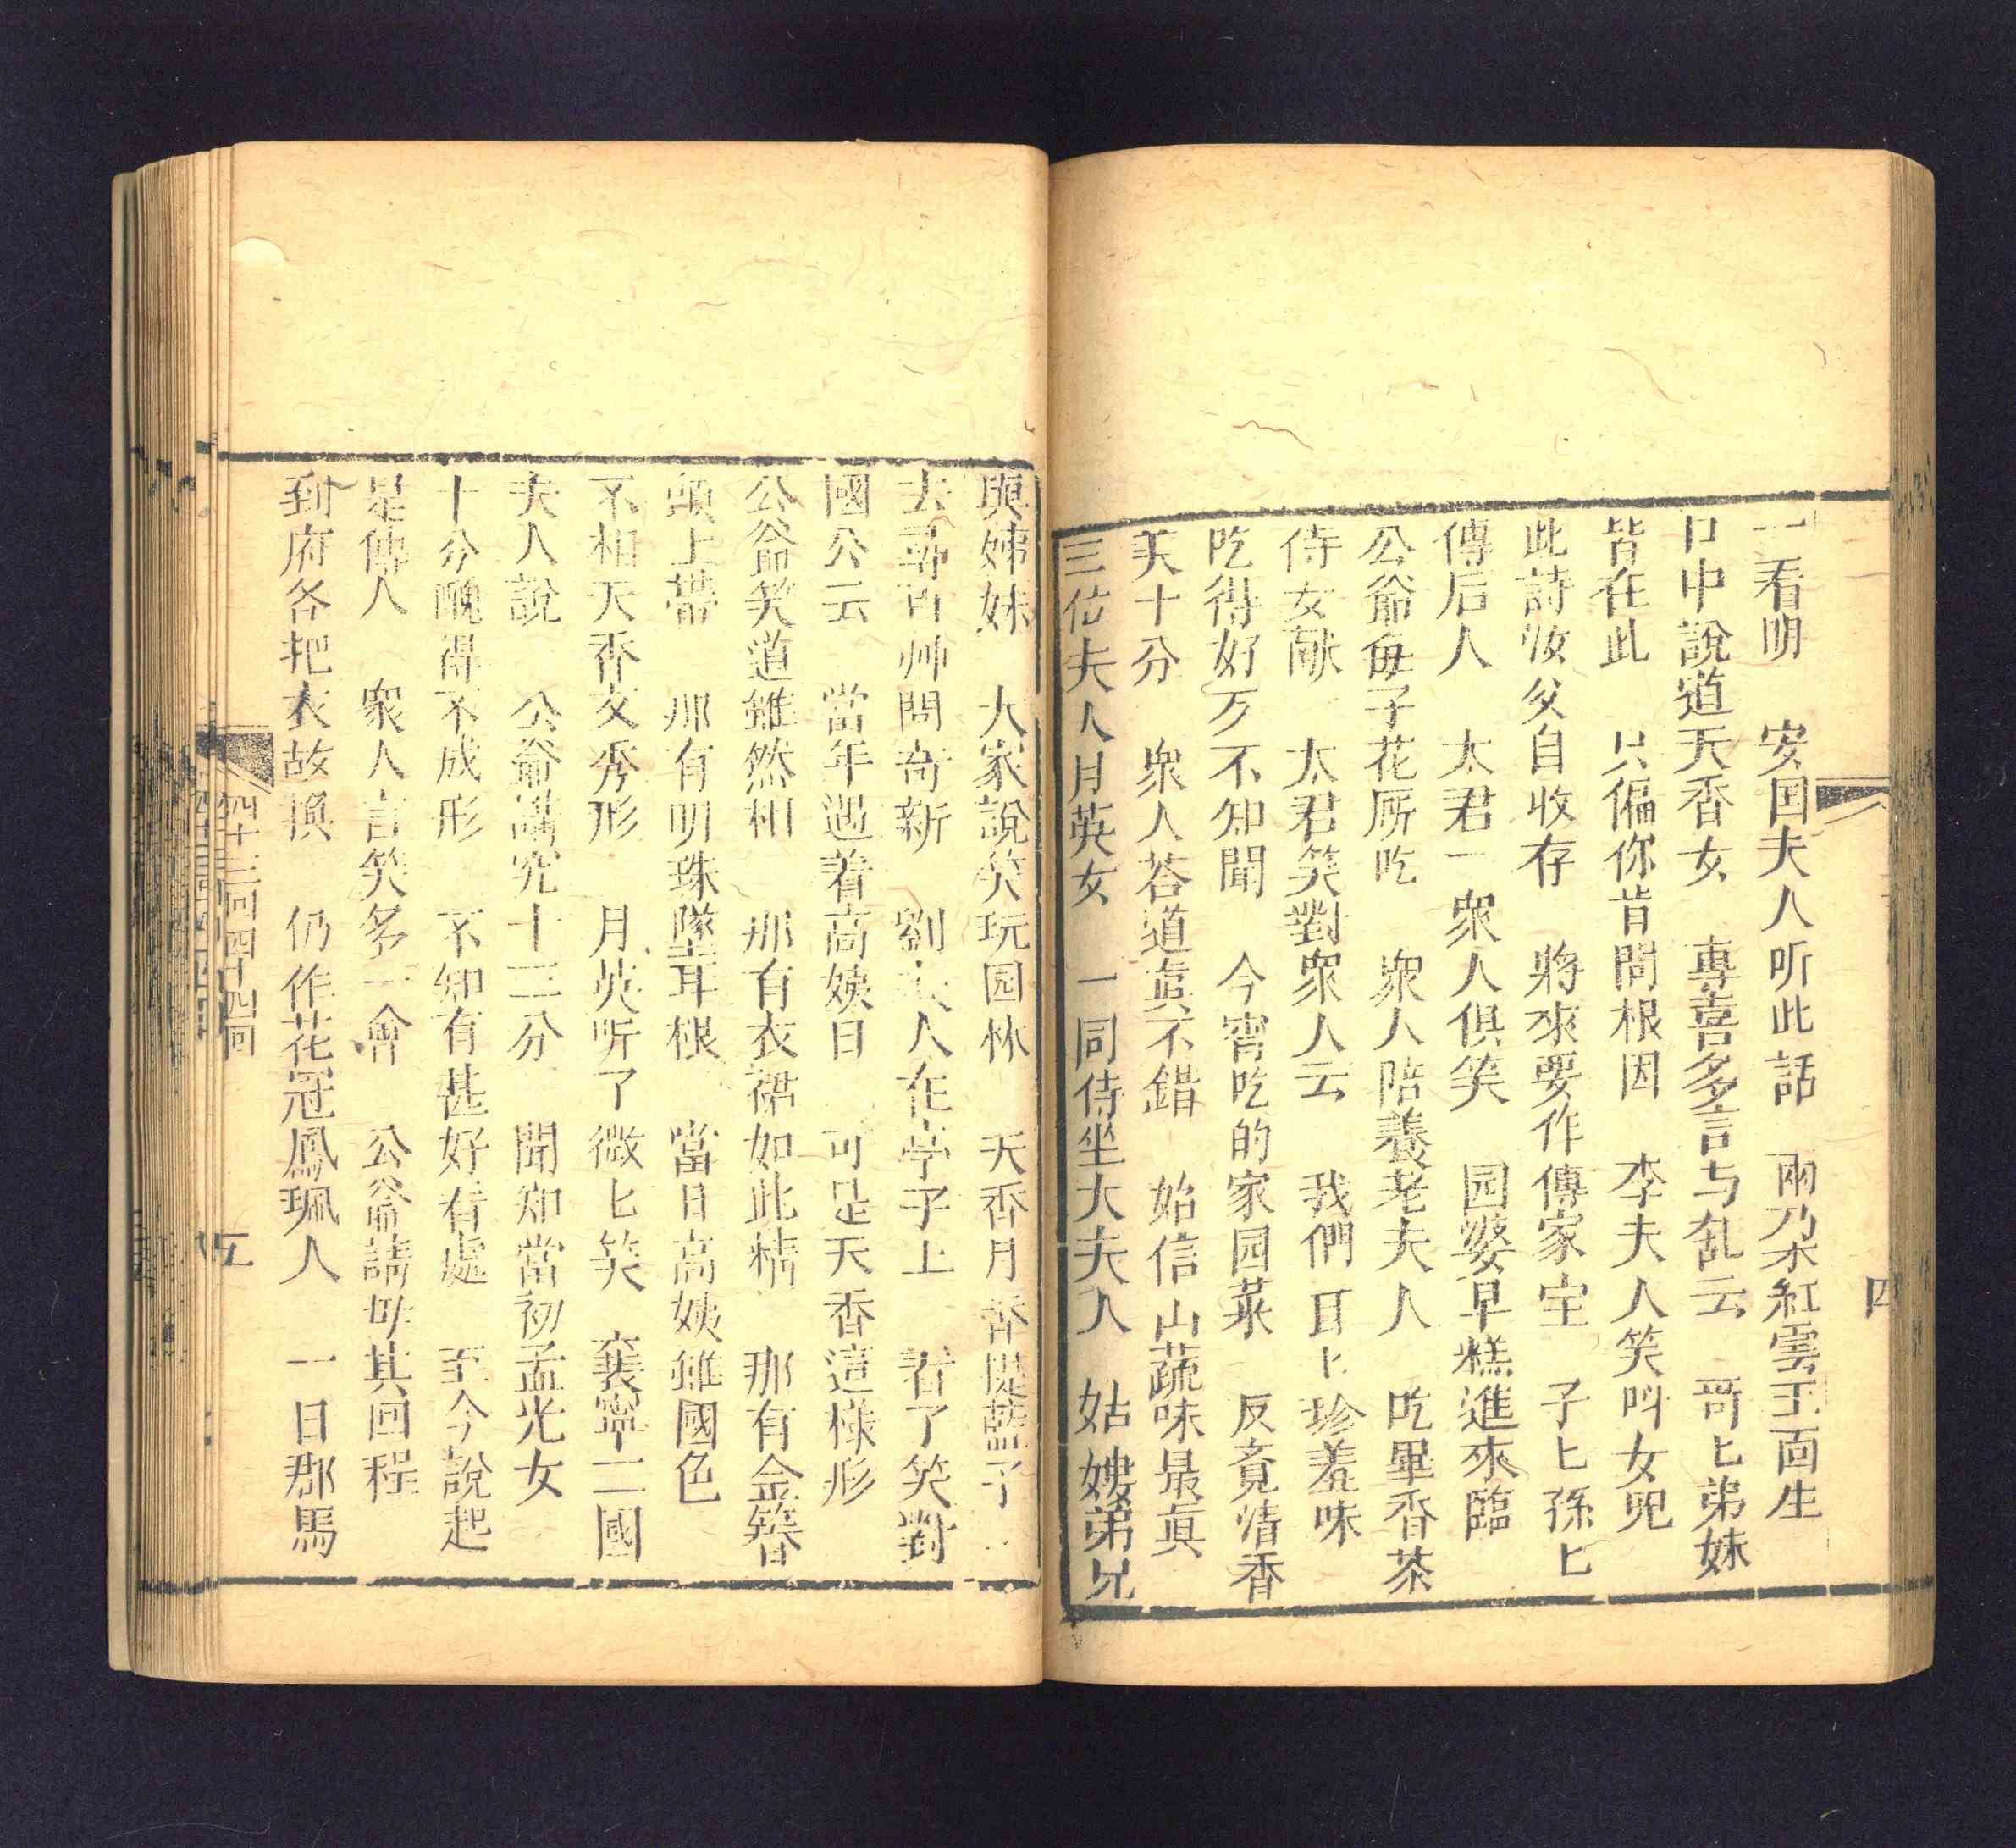 一看明　安国夫人听此話　兩朶紅雲玉面生
口中說道天香女　專喜多言与乱云　哥匕弟妹
皆在此　只偏你肯問根因　李夫人笑呌女兒
此詩汝父自收存　將來要作傳家宝　子匕孫匕
傳后人　太君一衆人俱笑　园婆早糕進來臨
公爺毎子花厮吃　衆人陪養老夫人　吃畢香茶
侍女献　太君笑對衆人云　我們日匕珍羞味
吃得好歹不知聞　今宵吃的家园菜　反竟清香
美十分　衆人荅道真不錯　始信山蔬味最眞
三位夫人月英女　一同侍坐大夫人　姑嫂弟兄
四
與姊妹　大家說笑玩园林　天香月香提藍子
去尋百艸問奇新　劉夫人在亭子上　看了笑對
國公云　當年遇着高姨日　可是天香這樣形
公爺笑道雖然相　那有衣裙如此精　那有金簪
頭上帶　那有明珠墜耳根　當日高姨雖國色
不相天香文秀形　月英听了微匕笑　襄寧二國
夫人說　公爺講究十三分　聞知當初孟光女
十分醜得不成形　不知有甚好看處　至今說起
是傳人　衆人言笑多一會　公爺請母其回程
到府各把衣故換　仍作花冠鳳珮人　一日郡馬
四十三回四十四回　五